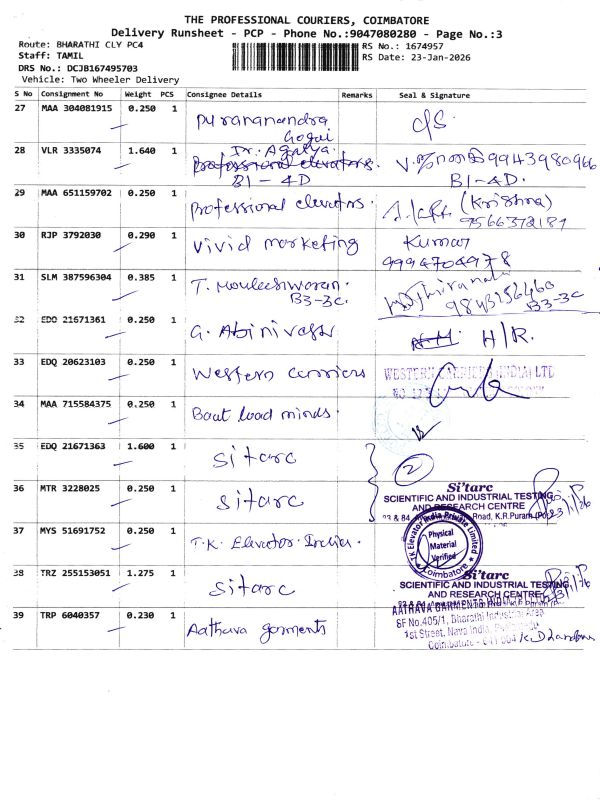 THE PROFESSIONAL COURIERS, COIMBATORE
Delivery Runsheet - PCP - Phone No.:9047080280 - Page No.:3
Route: BHARATHI CLY PC4
RS No.: 1674957
Staff: TAMIL
RS Date: 23-Jan-2026
DRS No.: DCJB167495703
Vehicle: Two Wheeler Delivery
S No Consignment No Weight PCS Consignee Details Remarks Seal & Signature
27 MAA 304081915 0.250 1 Purananandra Gogai
28 VLR 3335074 1.640 1 Dr. Agalya.
Professional elevators.
B1-4D 9943980966
B1-4D.
29 MAA 651159702 0.250 1 Professional elevators. (Krishna)
9566372189
30 RJP 3792030 0.290 1 Vivid marketing Kumar
9994704978
31 SLM 387596304 0.385 1 T. Mouleshwaran.
B3-3C. 9843256460
B3-3C
32 EDO 21671361 0.250 1 G. Abinivash H/R.
33 EDQ 20623103 0.250 1 Western carriers WESTERN CARRIERS (INDIA) LTD
34 MAA 715584375 0.250 1 Boat load minds.
35 EDQ 21671363 1.600 1 Sitarc 2
36 MTR 3228025 0.250 1 Sitarc
Si'tarc
SCIENTIFIC AND INDUSTRIAL TESTING
AND RESEARCH CENTRE
Road, K.R.Puram
37 MYS 51691752 0.250 1 T.K. Elevator India.
TK Elevator India Private Limited
Physical
Material
Verified
Coimbatore
38 TRZ 255153051 1.275 1 Sitarc
Si'tarc
SCIENTIFIC AND INDUSTRIAL TESTING
AND RESEARCH CENTRE
39 TRP 6040357 0.230 1 Aathava garments
AATHAVA GARMENTS
SF No.405/1, Bharathi Industrial Area
1st Street, Nava India,
Coimbatore